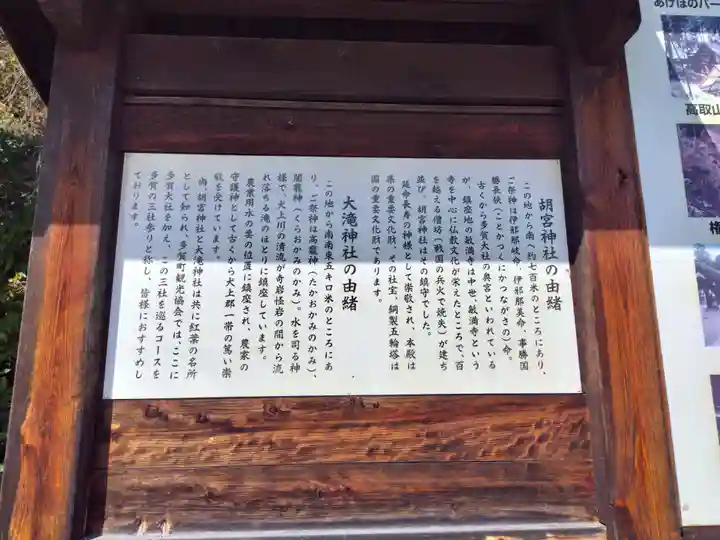 あけぼのパー
高取山
胡宮神社の由緒
この地から南へ約七百米のところにあり、
ご祭神は伊邪那岐命、伊邪那美命、事勝国
勝長狭(ことかつくにかつながさの)命。
古くから多賀大社の奥宮といわれている
が、鎮座地の敏満寺は中世、敏満寺という
寺を中心に仏教文化が栄えたところで、百
を越える僧坊(戦国の兵火で焼失)が建ち
並び、胡宮神社はその鎮守でした。
延命長寿の神様として崇敬され、本殿は
県の重要文化財、その社宝、銅製五輪塔は
国の重要文化財であります。
大滝神社の由緒
この地から南南東五キロ米のところにあ
り、ご祭神は高龗神(たかおかみのかみ)、
闇龗神(くらおかみのかみ)。水を司る神
様で、犬上川の清流が奇岩怪岩の間から流
れ落ちる滝のほとりに鎮座しています。
農業用水の要の位置に鎮座され、農家の
守護神として古くから犬上郡一帯の篤い崇
敬を受けています。
尚、胡宮神社と大滝神社は共に紅葉の名所
として知られ、多賀町観光協会では、ここに
多賀大社を加え、この三社を巡るコースを
多賀の三社参りと称し、皆様におすすめし
ております。